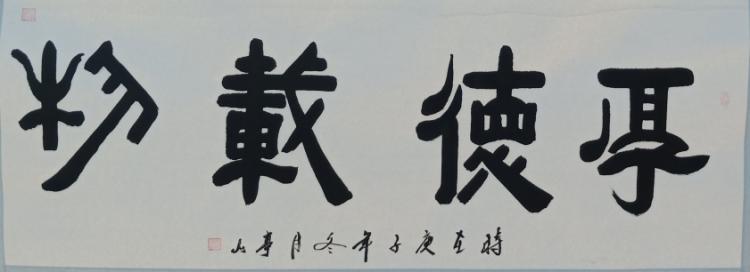 厚德載物
時在庚子年冬月善山